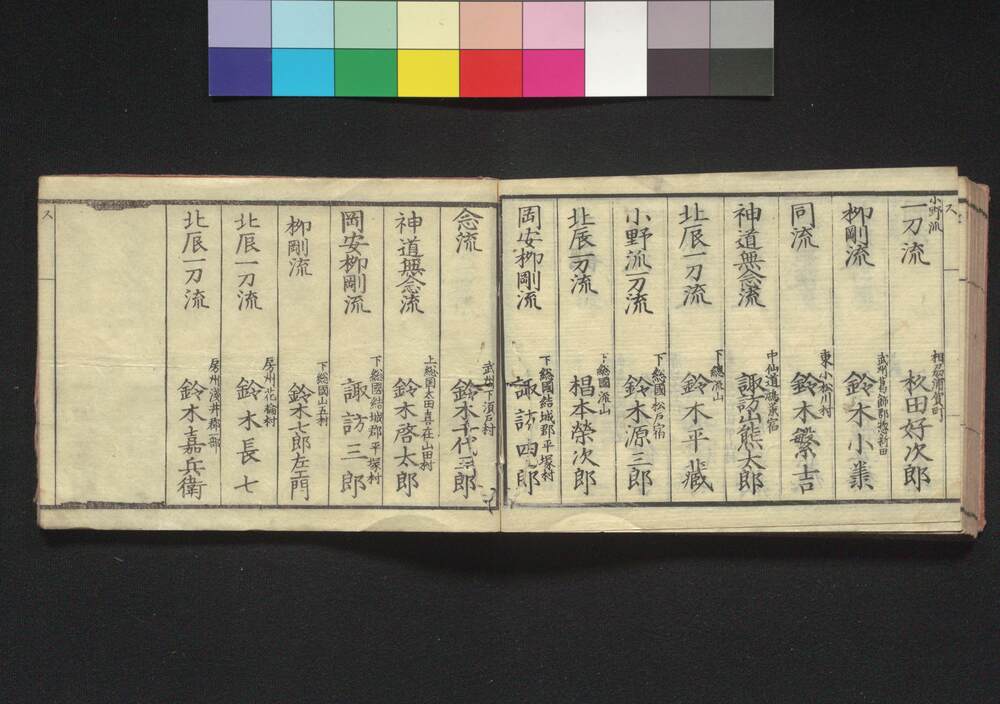 ス
小野流
一刀流
相州浦賀町
杦田好次郎
柳剛流
武州葛飾郡惣新田
鈴木小業
同流
東小松川村
鈴木繁吉
神道無念流
中仙道鴻巣宿
諏訪山熊太郎
北辰一刀流
下總流山
鈴木平藏
小野派一刀流
下総國松戸宿
鈴木源三郎
北辰一刀流
下総國流山
椙本榮次郎
岡安柳剛流
下総國結城郡平塚村
諏訪四郎
念流
武州下須戸村
鈴木千代三郎
神道無念流
上総國太田喜在山田村
鈴木啓太郎
岡安柳剛流
下総國結城郡平塚村
諏訪三郎
柳剛流
下総國山王村
鈴木七郎左エ門
北辰一刀流
房州花輪村
鈴木長七
北辰一刀流
房州淺井郡部
鈴木嘉兵衛
ス